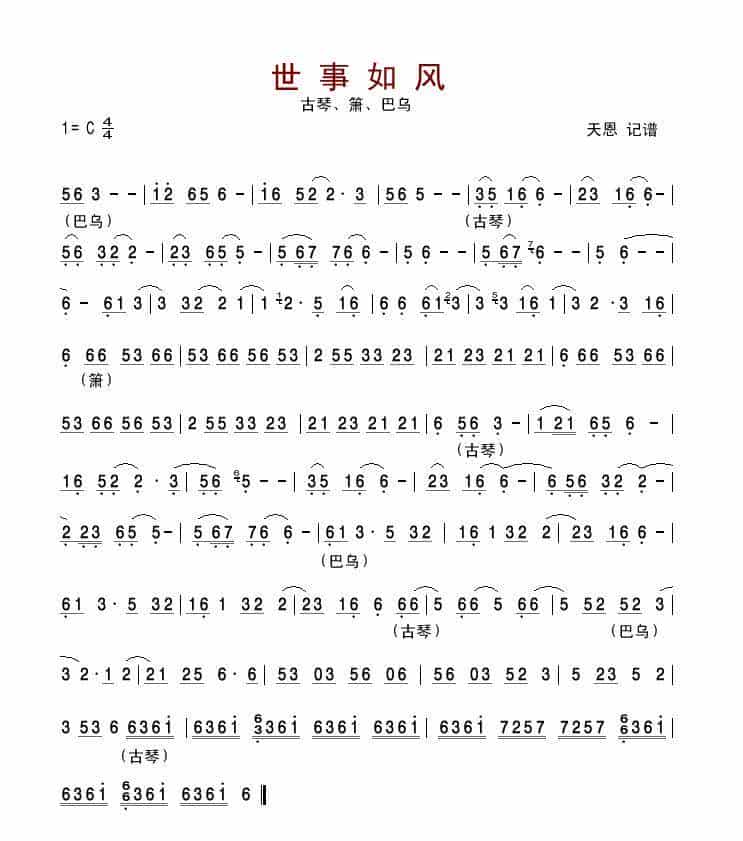 世事如风
古琴、箫、巴乌
1= C 4/4 天恩 记谱
56 3 - - | 12 65 6 - | 16 52 2· 3 | 56 5 - - | 35 16 6 - | 23 16 6 - |
(巴乌) (古琴)
56 32 2 - | 23 65 5 - | 5 67 76 6 - | 5 6 - - | 5 67 7 6 - | 5 6 - -
6 - 61 3 | 3 32 2 1 | 1 1 2· 5 16 | 6 6 61 2 3 | 3 5 3 16 1 | 3 2 ·3 16 |
6 66 53 66 | 53 66 56 53 | 2 55 33 23 | 21 23 21 21 | 6 66 53 66 |
(箫)
53 66 56 53 | 2 55 33 23 | 21 23 21 21 | 6 56 3 - | 1 21 65 6 - |
(古琴)
16 52 2 · 3 | 56 6 5 - - | 35 16 6 - | 23 16 6 - | 6 56 32 2 - |
2 23 65 5 - | 5 67 76 6 - | 61 3· 5 32 | 16 1 32 2 | 23 16 6 - |
(巴乌)
61 3· 5 32 | 16 1 32 2 | 23 16 6 66 | 5 66 5 66 | 5 52 52 3 |
(古琴) (巴乌)
3 2· 1 2 | 21 25 6· 6 | 53 03 56 06 | 56 03 52 3 | 5 23 5 2 |
3 53 6 6361 | 6361 6/3361 6361 6361 | 6361 7257 7257 6/6361 |
(古琴)
6361 6/6361 6361 6 ‖